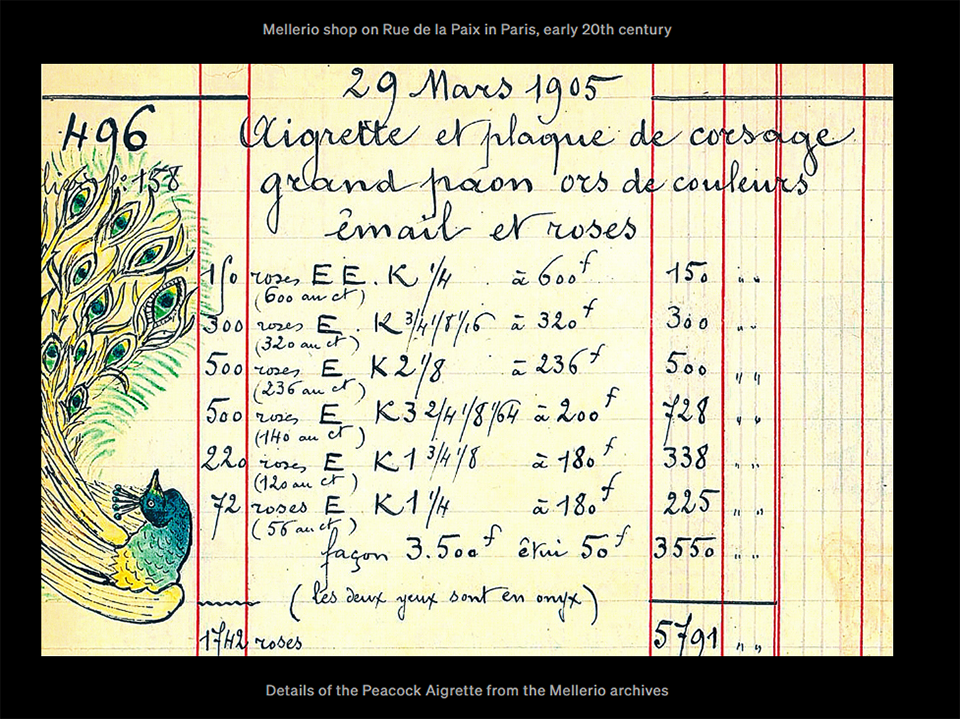 Mellerio shop on Rue de la Paix in Paris, early 20th century
29 Mars 1905
496 Aigrette et plaque de corsage
158 grand paon ors de couleurs
émail et roses
150 roses E E . K 1/4 à 600 f 150 " "
(600 au ct)
300 roses E . K 3/4 1/8 1/16 à 320 f 300 " "
(320 au ct)
500 roses E K 2 1/8 à 236 f 500 " "
(236 au ct)
500 roses E K 3 2/4 1/8 1/64 à 200 f 728 " "
(140 au ct)
220 roses E K 1 3/4 1/8 à 180 f 338 " "
(120 au ct)
72 roses E K 1 1/4 à 180 f 225 " "
(56 au ct)
façon 3.500 f étui 50 f 3550 " "
(les deux yeux sont en onyx)
1742 roses 5791 " "
Details of the Peacock Aigrette from the Mellerio archives